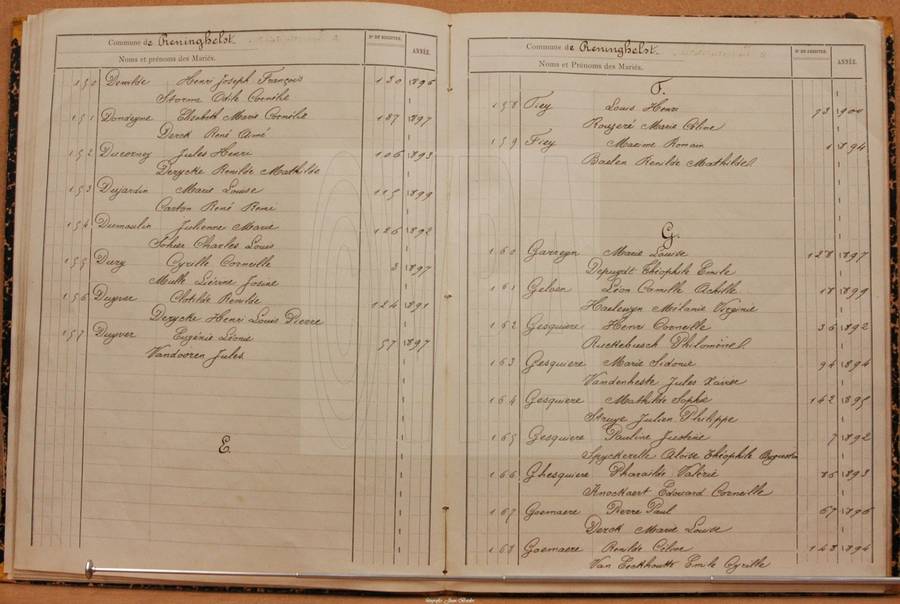 Commune de Reninghelst
Nº DE REGISTRE.
ANNÉE.
Noms et prénoms des Mariés.
150 Dewilde Henri Joseph François 120 1896
Storme Odile Cornélie
151 Dondeyne Elisabeth Marie Cornélie 187 1897
Derck René Aimé
152 Ducornez Jules Henri 106 1893
Derycke Renilde Mathilde
153 Dujardin Marie Louise 115 1899
Carton René Remi
154 Dumoulin Julienne Marie 126 1892
Sohier Charles Louis
155 Dury Cyrille Corneille 3 1897
Mulle Liévine Josine
156 Duyver Clotilde Renilde 124 1891
Derycke Henri Louis Pierre
157 Duyver Eugénie Léonie 57 1897
Vandooren Jules
E.
Commune de Reninghelst
Nº DE REGISTRE.
ANNÉE.
Noms et Prénoms des Mariés.
F.
158 Fiey Louis Henri 93 1900
Rouzeré Marie Céline
159 Fiey Maxime Romain 1 1894
Baelen Renilde Mathilde
G.
160 Garreyn Marie Louise 128 1897
Depuydt Théophile Emile
161 Geloen Léon Camille Achille 18 1899
Haelewyn Mélanie Virginie
162 Gesquiere Henri Corneille 36 1892
Ruckebusch Philomène
163 Gesquiere Marie Sidonie 94 1894
Vandenheste Jules Xavier
164 Gesquiere Mathilde Sophie 142 1895
Struye Julien Philippe
165 Gesquiere Pauline Justine 7 1892
Spyckerelle Aloïse Théophile Augustin
166 Ghesquiere Pharaïlde Valérie 85 1893
Knockaert Edouard Corneille
167 Goemaere Pierre Paul 67 1896
Derck Marie Louise
168 Goemaere Renilde Céline 148 1894
Van Eeckhoutte Emile Cyrille